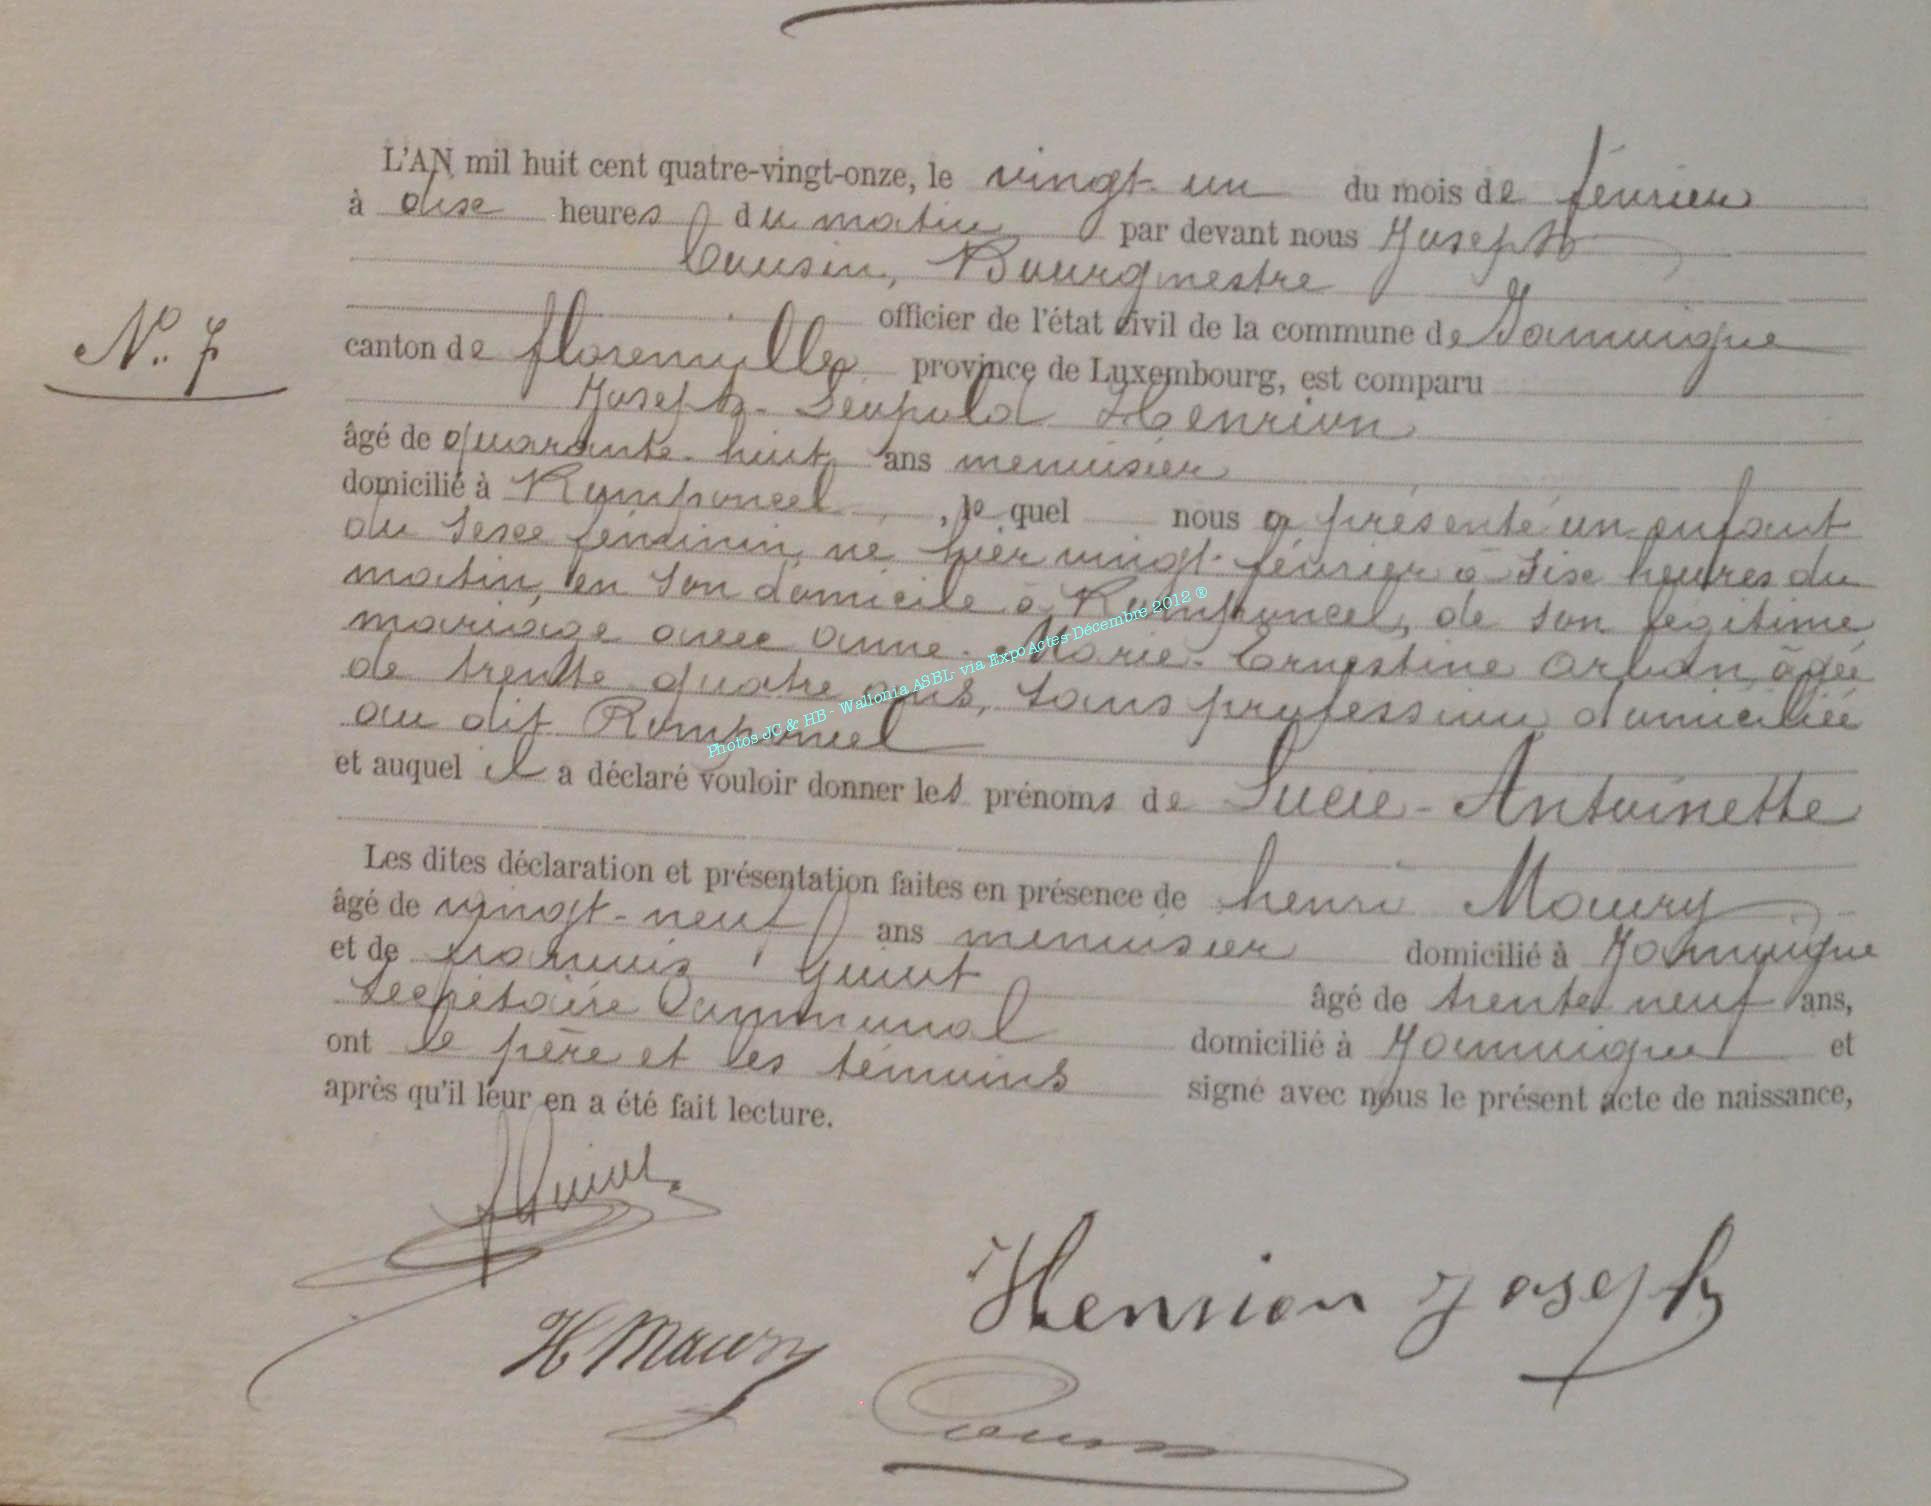 L'AN mil huit cent quatre-vingt-onze, le vingt-un du mois de février
à dix heures du matin par devant nous Joseph
Cousin, Bourgmestre
officier de l'état civil de la commune de Jamoigne
N° 7
canton de florenville province de Luxembourg, est comparu
Joseph-Léopold Henrion
âgé de quarante-huit ans menuisier
domicilié à Romponcel, le quel nous a présenté un enfant
du sexe féminin, né hier vingt février à six heures du
matin, en son domicile à Romponcel, de son légitime
mariage avec Anne-Marie-Ernestine Orban, âgée
de trente quatre ans, sans profession, domiciliée
au dit Romponcel
et auquel il a déclaré vouloir donner les prénoms de Lucie-Antoinette
Les dites déclaration et présentation faites en présence de henri Maury
âgé de vingt-neuf ans menuisier domicilié à Jamoigne
et de françois Guiot
Secrétaire Communal âgé de trente neuf ans,
domicilié à Jamoigne et
ont le père et les témoins signé avec nous le présent acte de naissance,
après qu'il leur en a été fait lecture.
Photos JC & HB - Wallonia ASBL - via ExpoActes Décembre 2012 ®
Guiot
Henrion Joseph
H Maury
Cousin